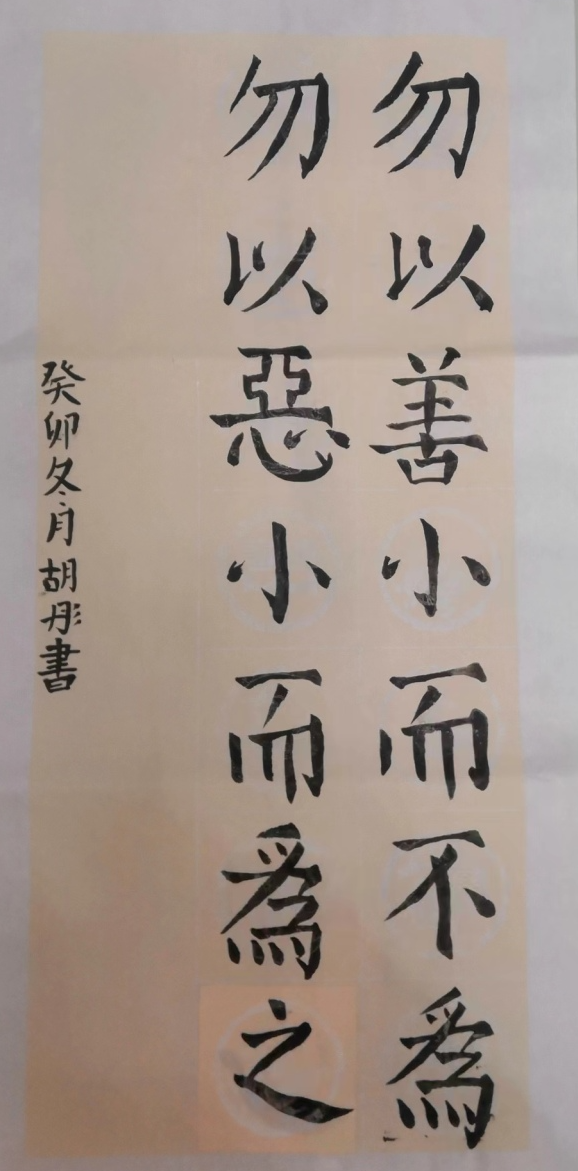 勿以善小而不爲
勿以惡小而爲之
癸卯冬月胡彤書